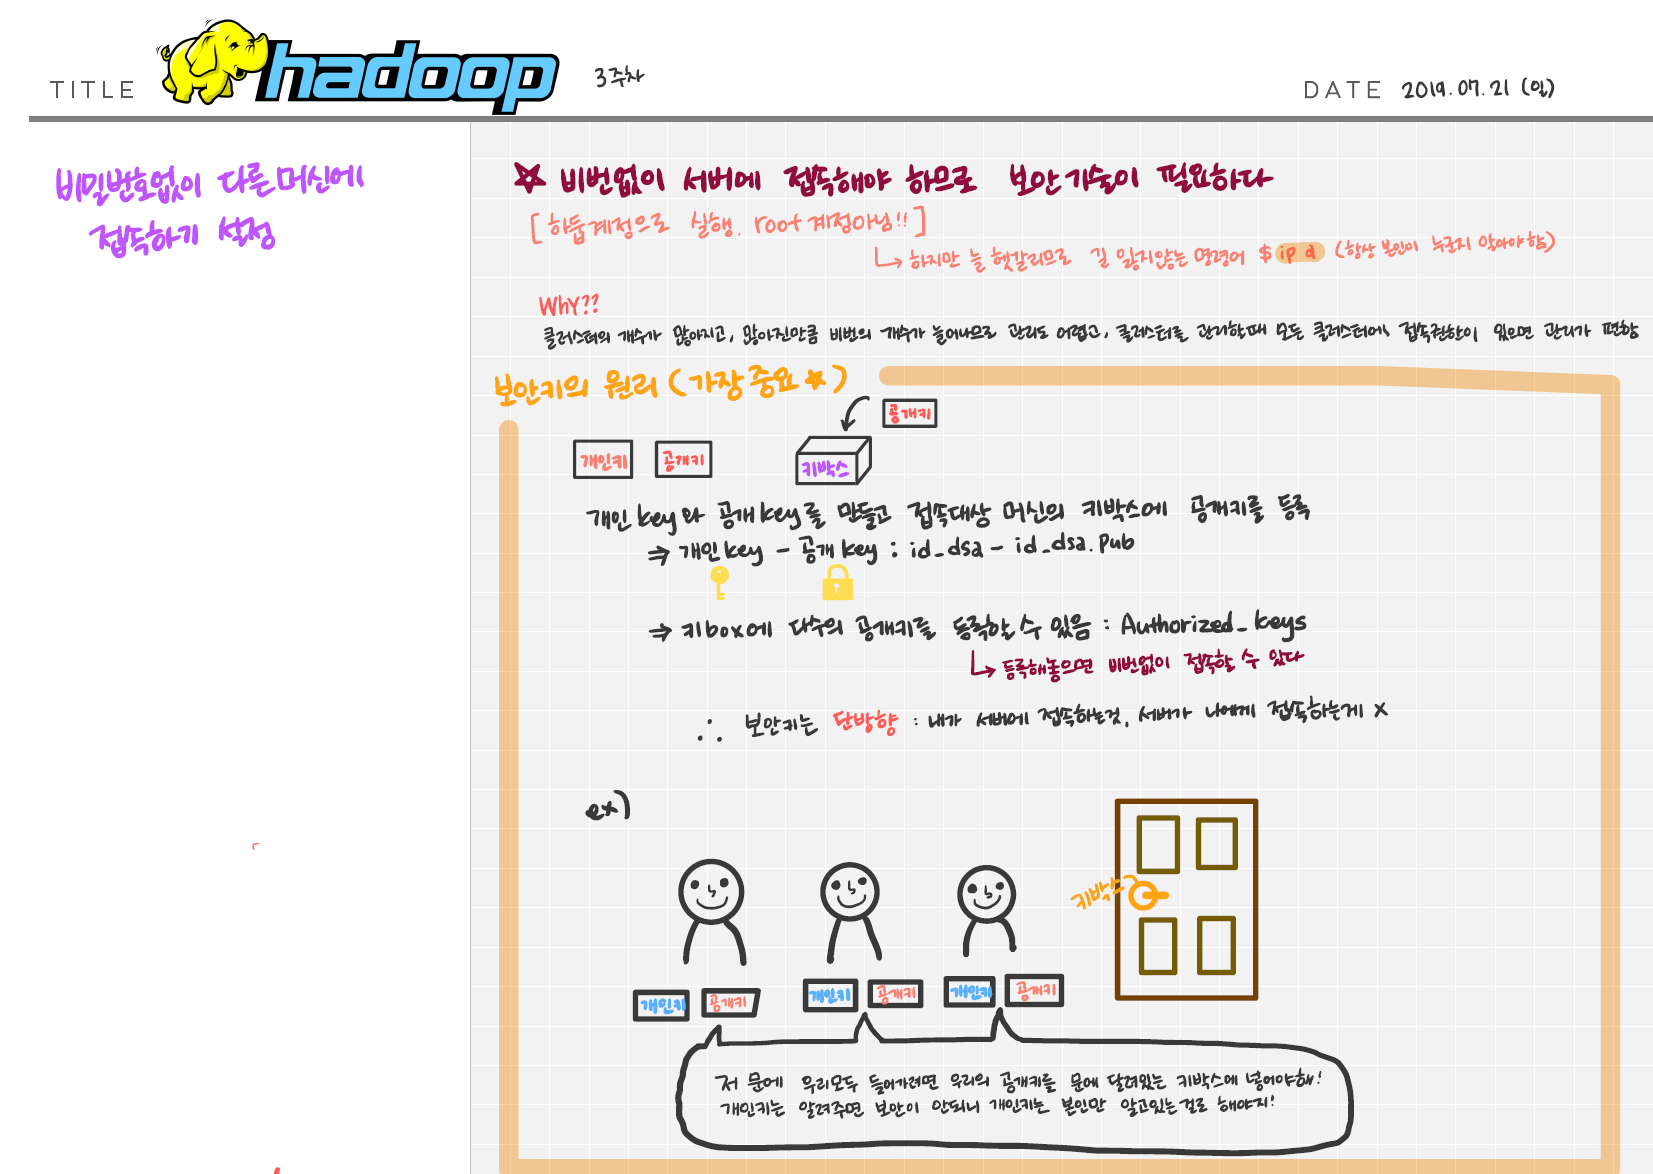 TITLE hadoop 3주차 DATE 2019.07.21 (일)
비밀번호없이 다른머신에
접속하기 설정
☆ 비번없이 서버에 접속해야 하므로 보안기술이 필요하다
[하둡계정으로 실행. root계정아님!!]
↳ 하지만 늘 헷갈리므로 길 잃지않는 명령어 $ ip a (항상 본인이 누군지 알아야함)
Why??
클러스터의 개수가 많아지고, 많아진만큼 비번의 개수가 늘어나므로 관리도 어렵고, 클러스터를 관리할때 모든 클러스터에 접속권한이 있으면 관리가 편함
보안키의 원리 (가장중요☆)
공개키
개인키 공개키 키박스
개인key와 공개key를 만들고 접속대상 머신의 키박스에 공개키를 등록
⇒ 개인key - 공개key : id_dsa - id_dsa.pub
⇒ 키box에 다수의 공개키를 등록할 수 있음 : Authorized_keys
↳ 등록해놓으면 비번없이 접속할 수 있다
∴ 보안키는 단방향 : 내가 서버에 접속하는것, 서버가 나에게 접속하는게 x
ex)
키박스
개인키 공개키 개인키 공개키 개인키 공개키
저 문에 우리모두 들어가려면 우리의 공개키를 문에 달려있는 키박스에 넣어야해!
개인키는 알려주면 보안이 안되니 개인키는 본인만 알고있는걸로 해야지!